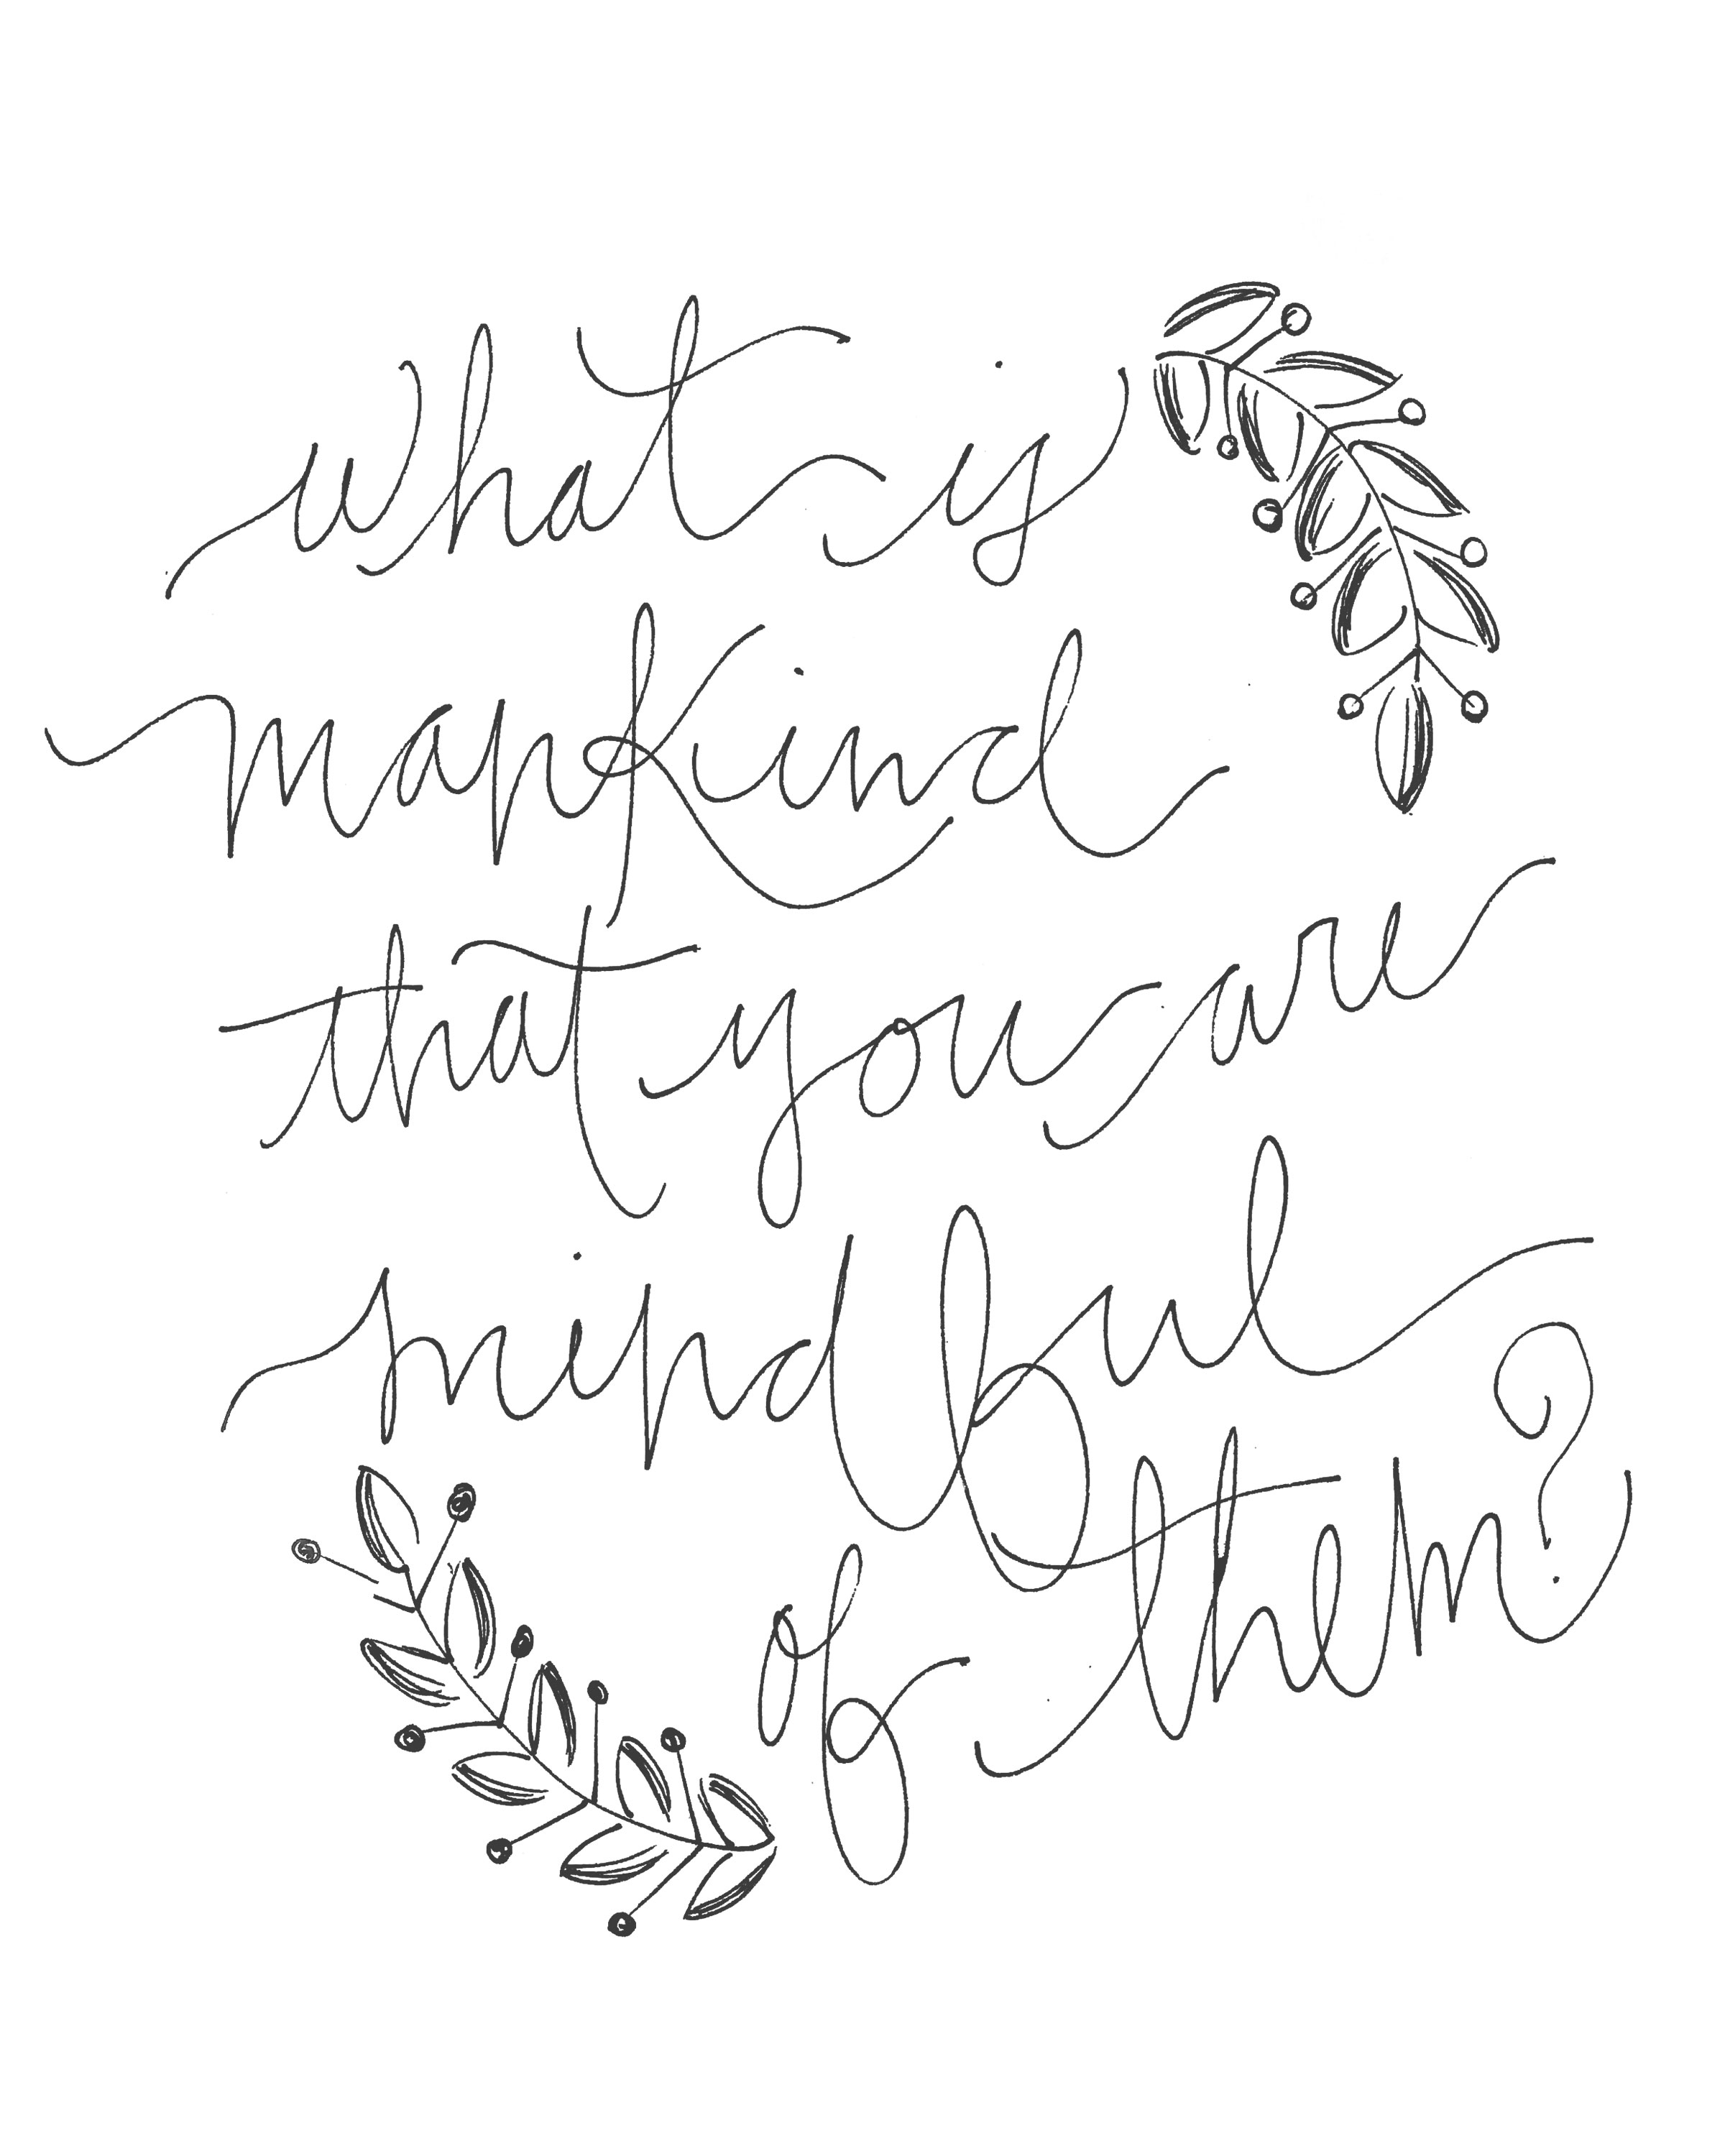 what is
mankind
that you are
mindful
of them?